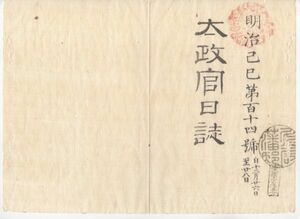 明治己巳第百十四號
自十二月廿六日
至廿八日
太政官日誌